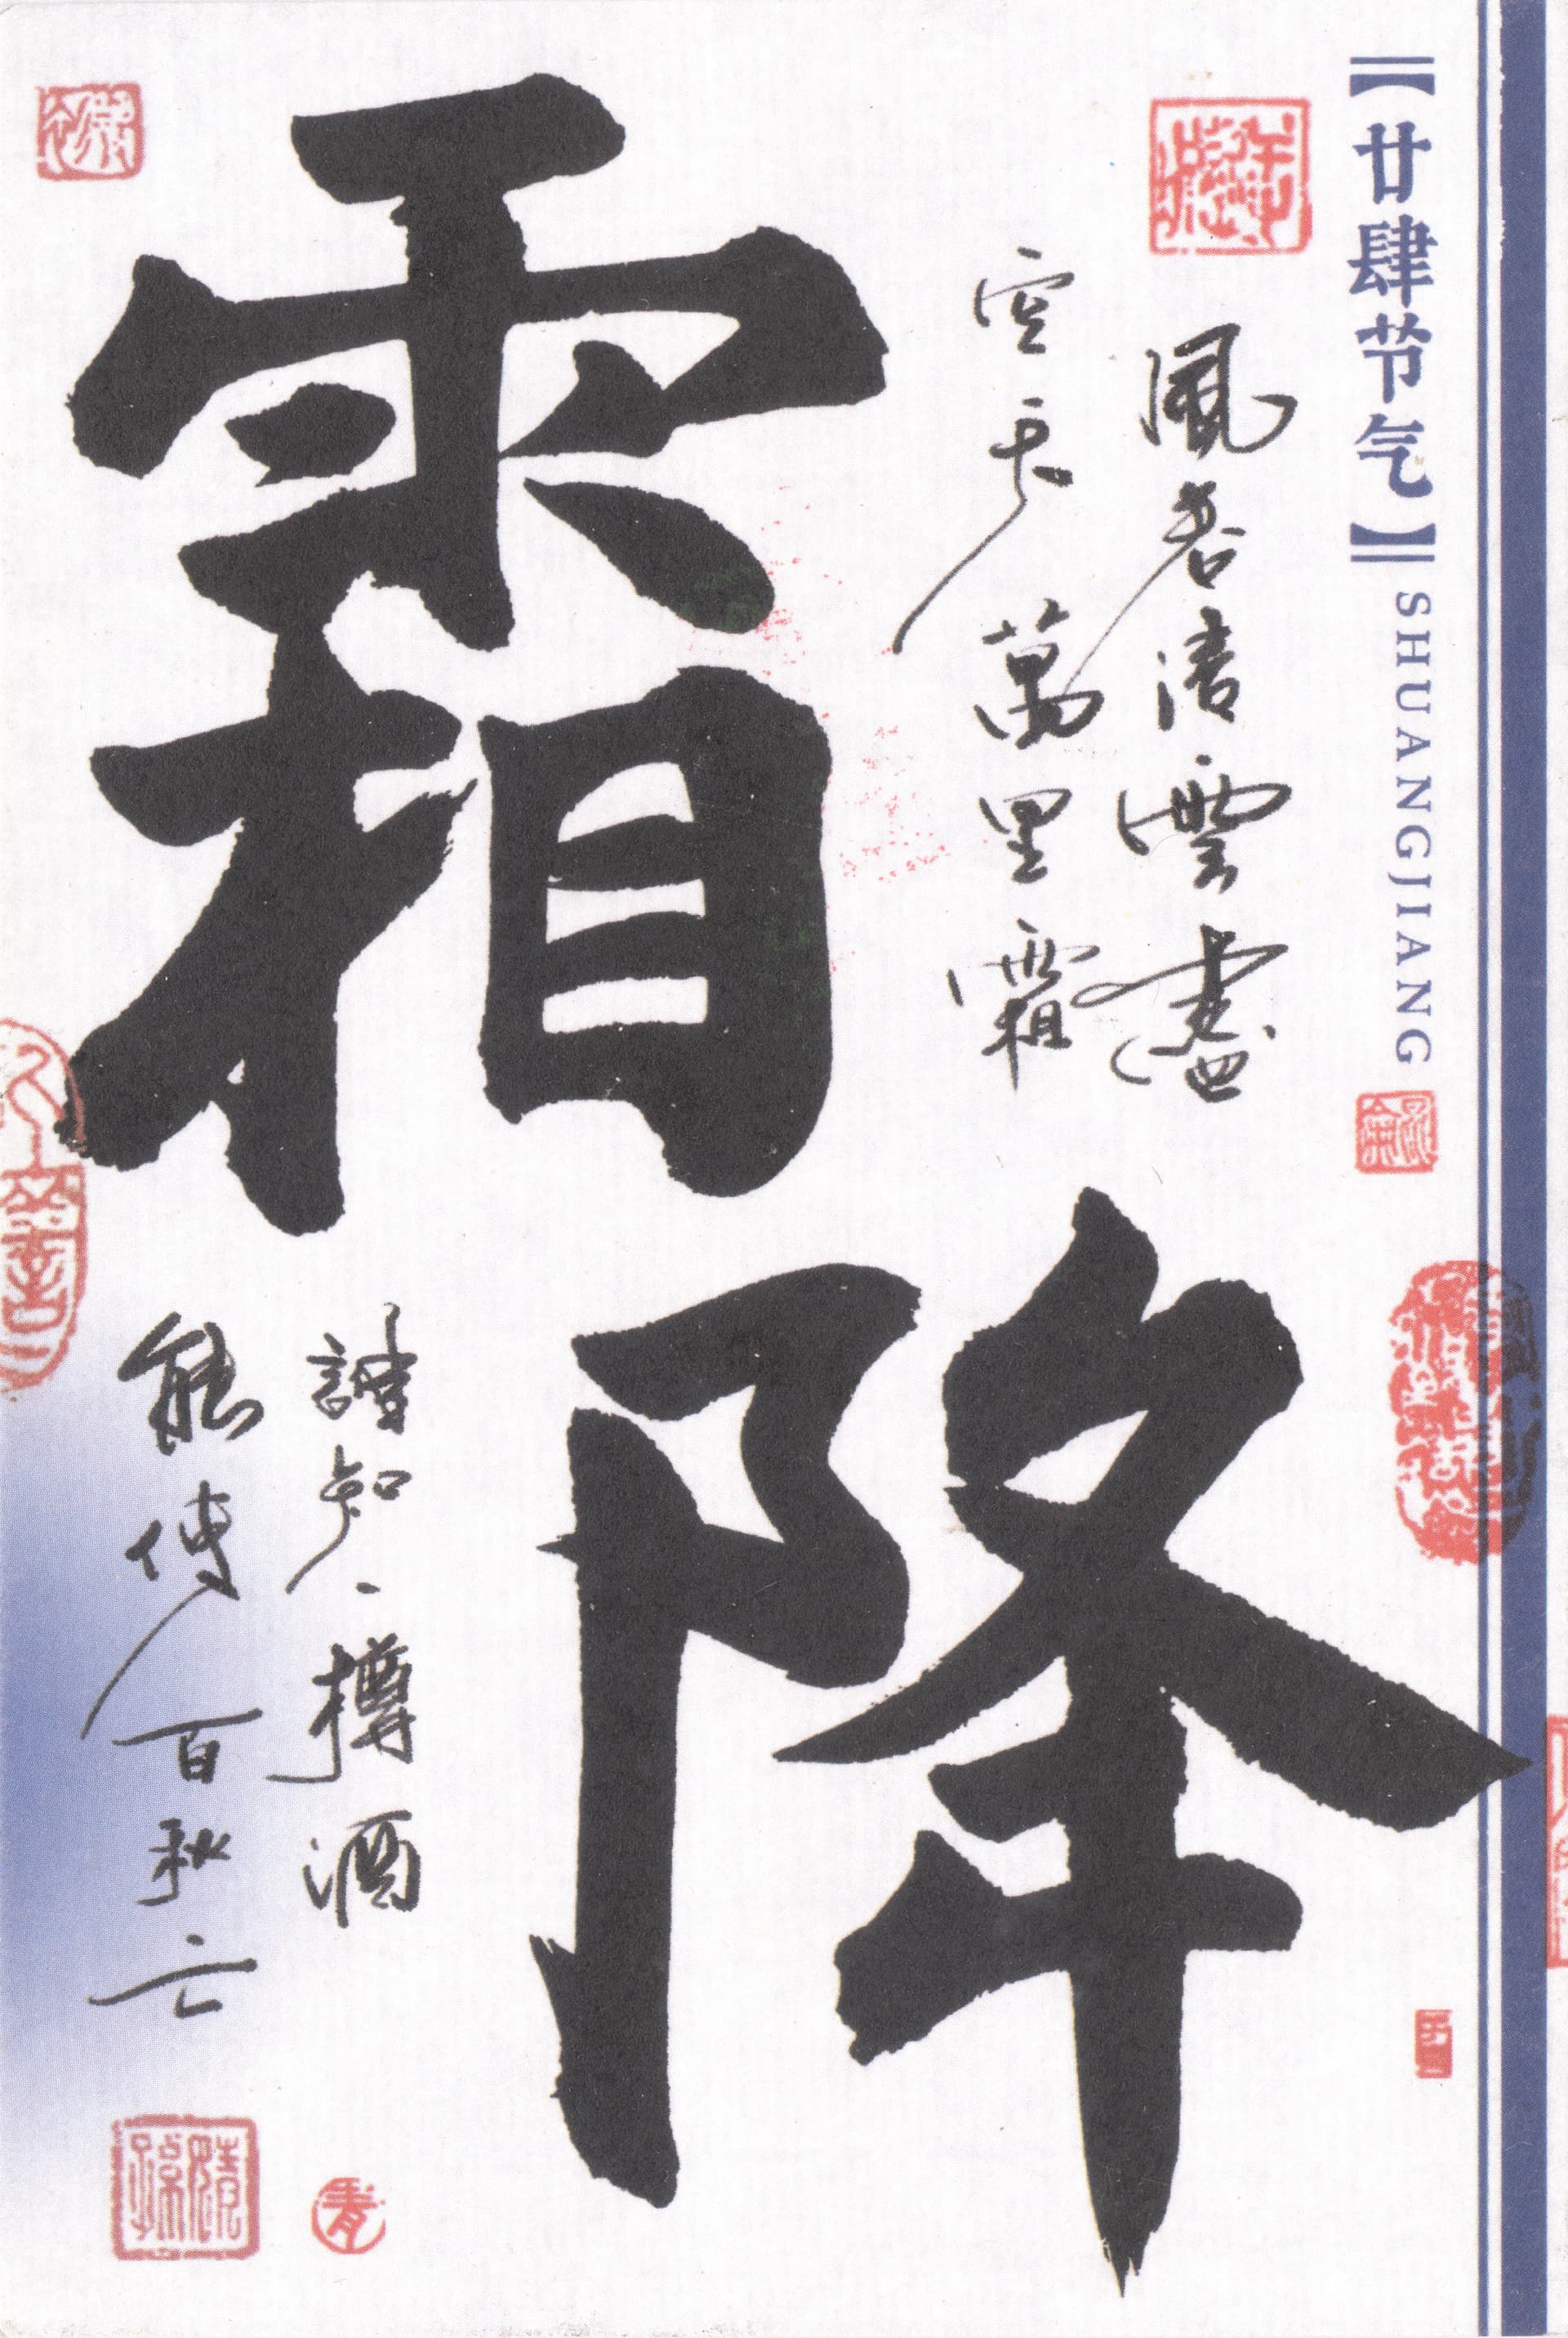 【廿肆节气】SHUANGJIANG
風卷清雲盡
空天萬里霜
霜
降
誰知一樽酒
能傳百秋亡